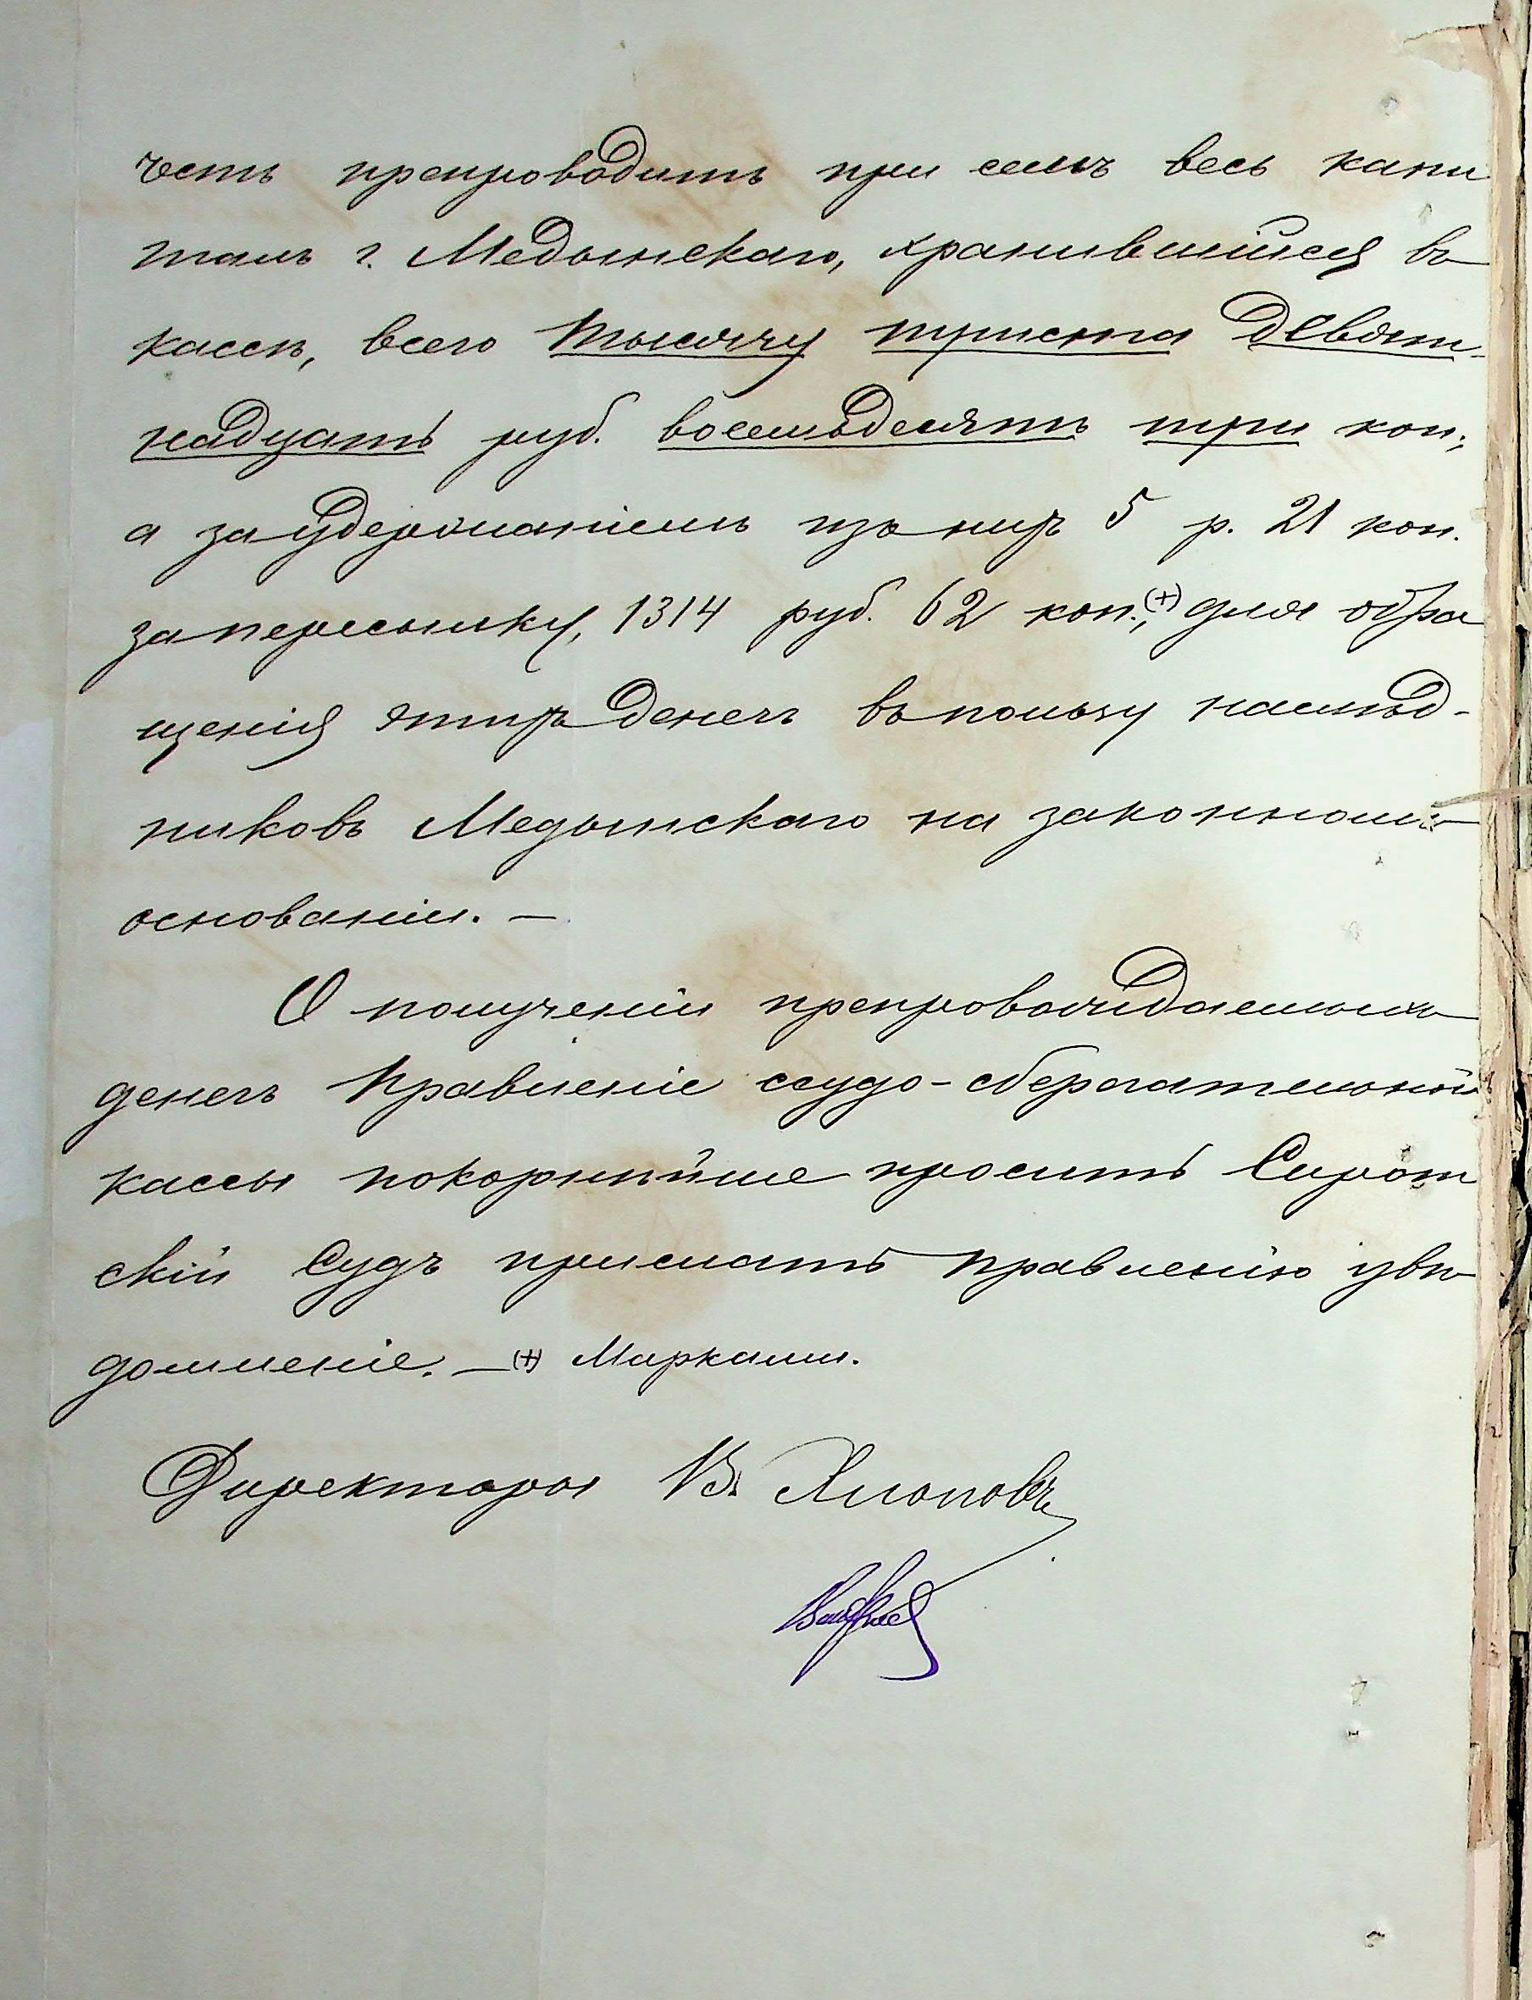 честь препроводить при семъ весь капи
талъ г. Медынскаго, хранившійся въ
кассѣ, всего тысячу триста девят-
надцать руб. восемьдесятъ три коп.,
а за удержаніемъ изъ нихъ 5 р. 21 коп.
за пересылку, 1314 руб. 62 коп.,(+) для обра
щенія этихъ денегъ въ пользу наслѣд-
никовъ Медынскаго на законномъ
основаніи. —
О полученіи препровождаемыхъ
денегъ Правленіе ссудо-сберегательной
кассы покорнѣйше проситъ Сирот
скій Судъ прислать Правленію увѣ
домленіе. — (+) Марками.
Директоры В. Хлоповъ